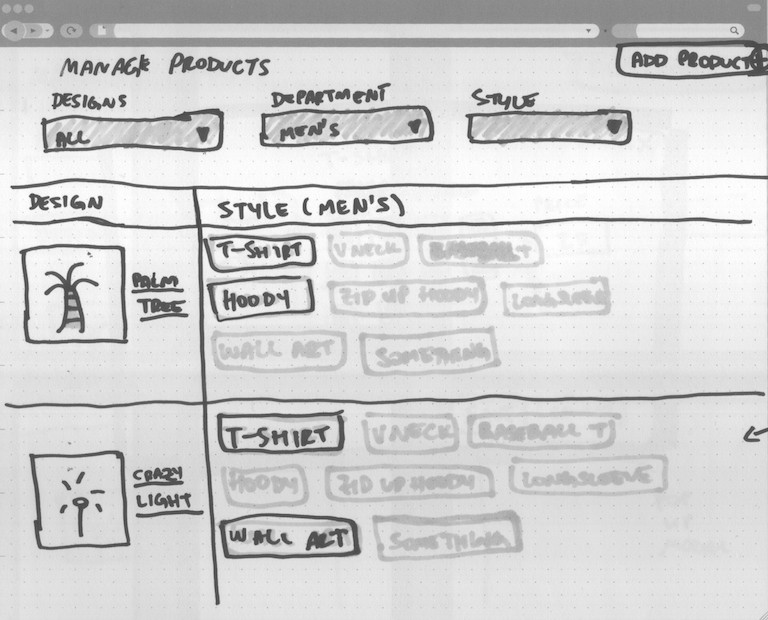 MANAGE PRODUCTS
ADD PRODUCT
DESIGNS
DEPARTMENT
STYLE
ALL
MEN'S
DESIGN
STYLE (MEN'S)
PALM
TREE
T-SHIRT
V NECK
BASEBALL T
HOODY
ZIP UP HOODY
LONGSLEEVE
WALL ART
SOMETHING
CRAZY
LIGHT
T-SHIRT
V NECK
BASEBALL T
HOODY
ZIP UP HOODY
LONGSLEEVE
WALL ART
SOMETHING